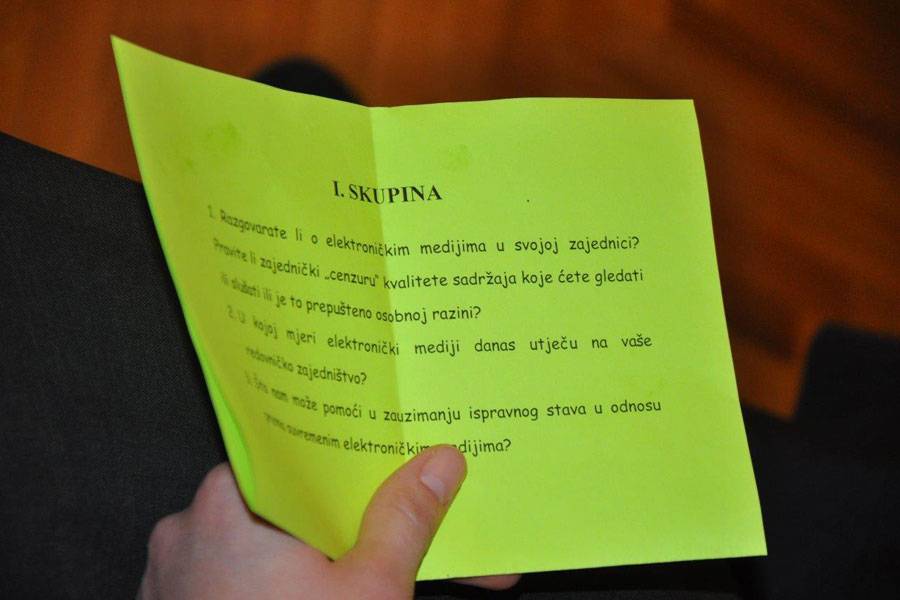 I. SKUPINA
1. Razgovarate li o elektroničkim medijima u svojoj zajednici?
Pravite li zajednički „cenzuru“ kvalitete sadržaja koje ćete gledati
ili slušati ili je to prepušteno osobnoj razini?
2. U kojoj mjeri elektronički mediji danas utječu na vaše
redovničko zajedništvo?
3. Što nam može pomoći u zauzimanju ispravnog stava u odnosu
prema suvremenim elektroničkim medijima?